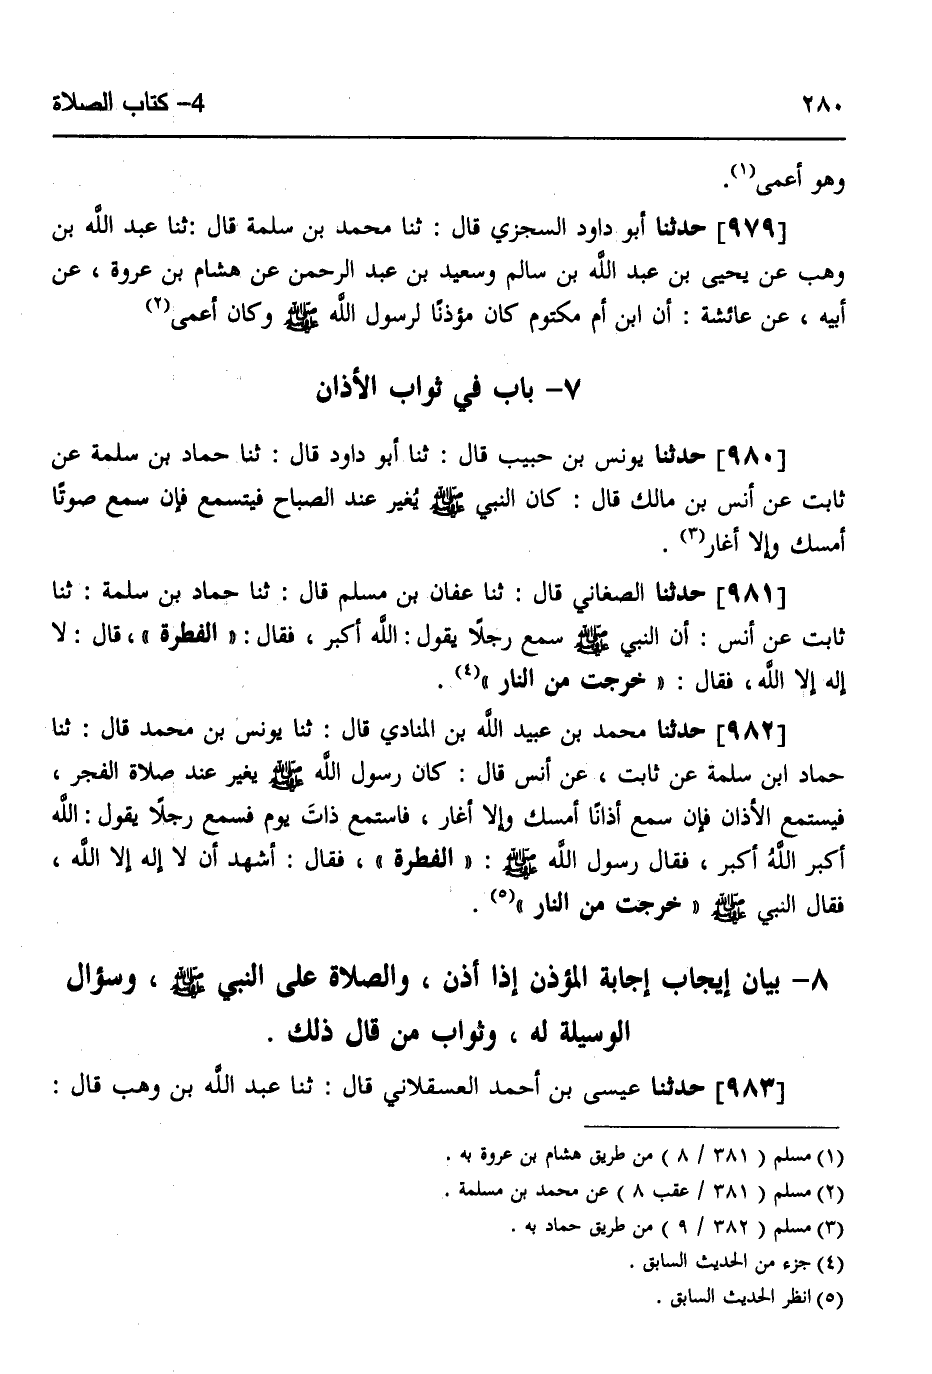 ٢٨٠
4- كتاب الصلاة
وهو أعمى(١).
[٩٧٩] حدثنا أبو داود السجزي قال : ثنا محمد بن سلمة قال :ثنا عبد اللَّه بن
وهب عن يحيى بن عبد اللَّه بن سالم وسعيد بن عبد الرحمن عن هشام بن عروة ، عن
أبيه ، عن عائشة : أن ابن أم مكتوم كان مؤذنًا لرسول اللَّه ﷺ وكان أعمى(٢)
٧- باب في ثواب الأذان
[٩٨٠] حدثنا يونس بن حبيب قال : ثنا أبو داود قال : ثنا حماد بن سلمة عن
ثابت عن أنس بن مالك قال : كان النبي ﷺ يُغير عند الصباح فيتسمع فإن سمع صوتًا
أمسك وإلا أغار(٣) .
[٩٨١] حدثنا الصغاني قال : ثنا عفان بن مسلم قال : ثنا حماد بن سلمة : ثنا
ثابت عن أنس : أن النبي ﷺ سمع رجلًا يقول : اللَّه أكبر ، فقال : « الفطرة » ، قال : لا
إله إلا اللَّه، فقال : « خرجت من النار »(٤) .
[٩٨٢] حدثنا محمد بن عبيد اللَّه بن المنادي قال : ثنا يونس بن محمد قال : ثنا
حماد ابن سلمة عن ثابت ، عن أنس قال : كان رسول اللَّه ﷺ يغير عند صلاة الفجر ،
فيستمع الأذان فإن سمع أذانًا أمسك وإلا أغار ، فاستمع ذاتَ يوم فسمع رجلًا يقول : اللَّه
أكبر اللَّهُ أكبر ، فقال رسول اللَّه ﷺ : « الفطرة » ، فقال : أشهد أن لا إله إلا اللَّه ،
فقال النبي ﷺ « خرجت من النار »(٥) .
٨- بيان إيجاب إجابة المؤذن إذا أذن ، والصلاة على النبي ﷺ ، وسؤال
الوسيلة له ، وثواب من قال ذلك .
[٩٨٣] حدثنا عيسى بن أحمد العسقلاني قال : ثنا عبد اللَّه بن وهب قال :
(١) مسلم ( ٣٨١ / ٨ ) من طريق هشام بن عروة به .
(٢) مسلم ( ٣٨١ / عقب ٨ ) عن محمد بن مسلمة .
(٣) مسلم ( ٣٨٢ / ٩ ) من طريق حماد به .
(٤) جزء من الحديث السابق .
(٥) انظر الحديث السابق .